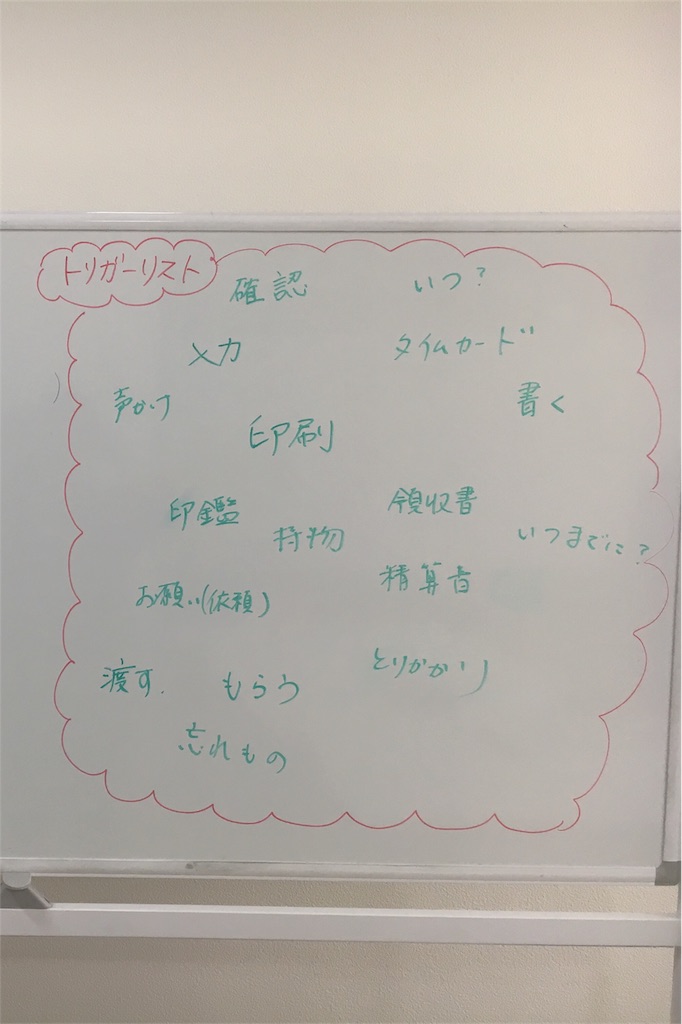 トリガーリスト
確認
いつ?
入力
タイムカード
声かけ
書く
印刷
印鑑
領収書
持物
いつまでに?
精算書
お願い(依頼)
とりかかり
渡す.
もらう
忘れもの